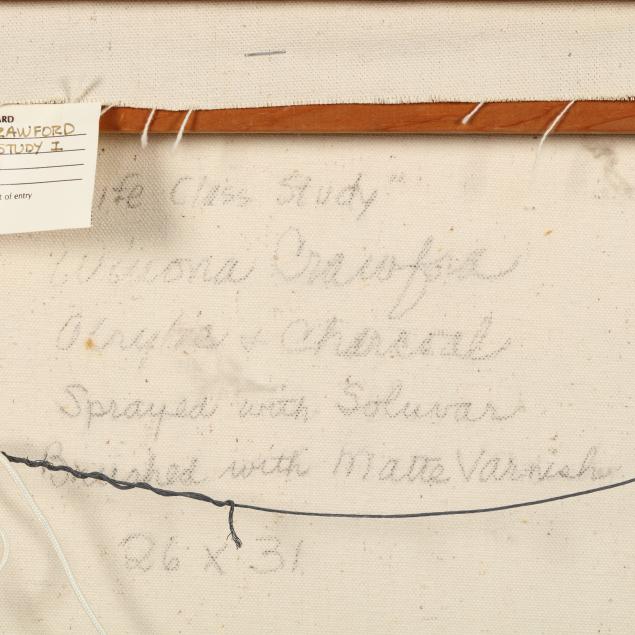 ARD
RAWFORD
STUDY I
t of entry
ife Class Study"
Winona Crawford
Acrylic + Charcoal
Sprayed with Soluvar
Brushed with Matte Varnish
26 x 31